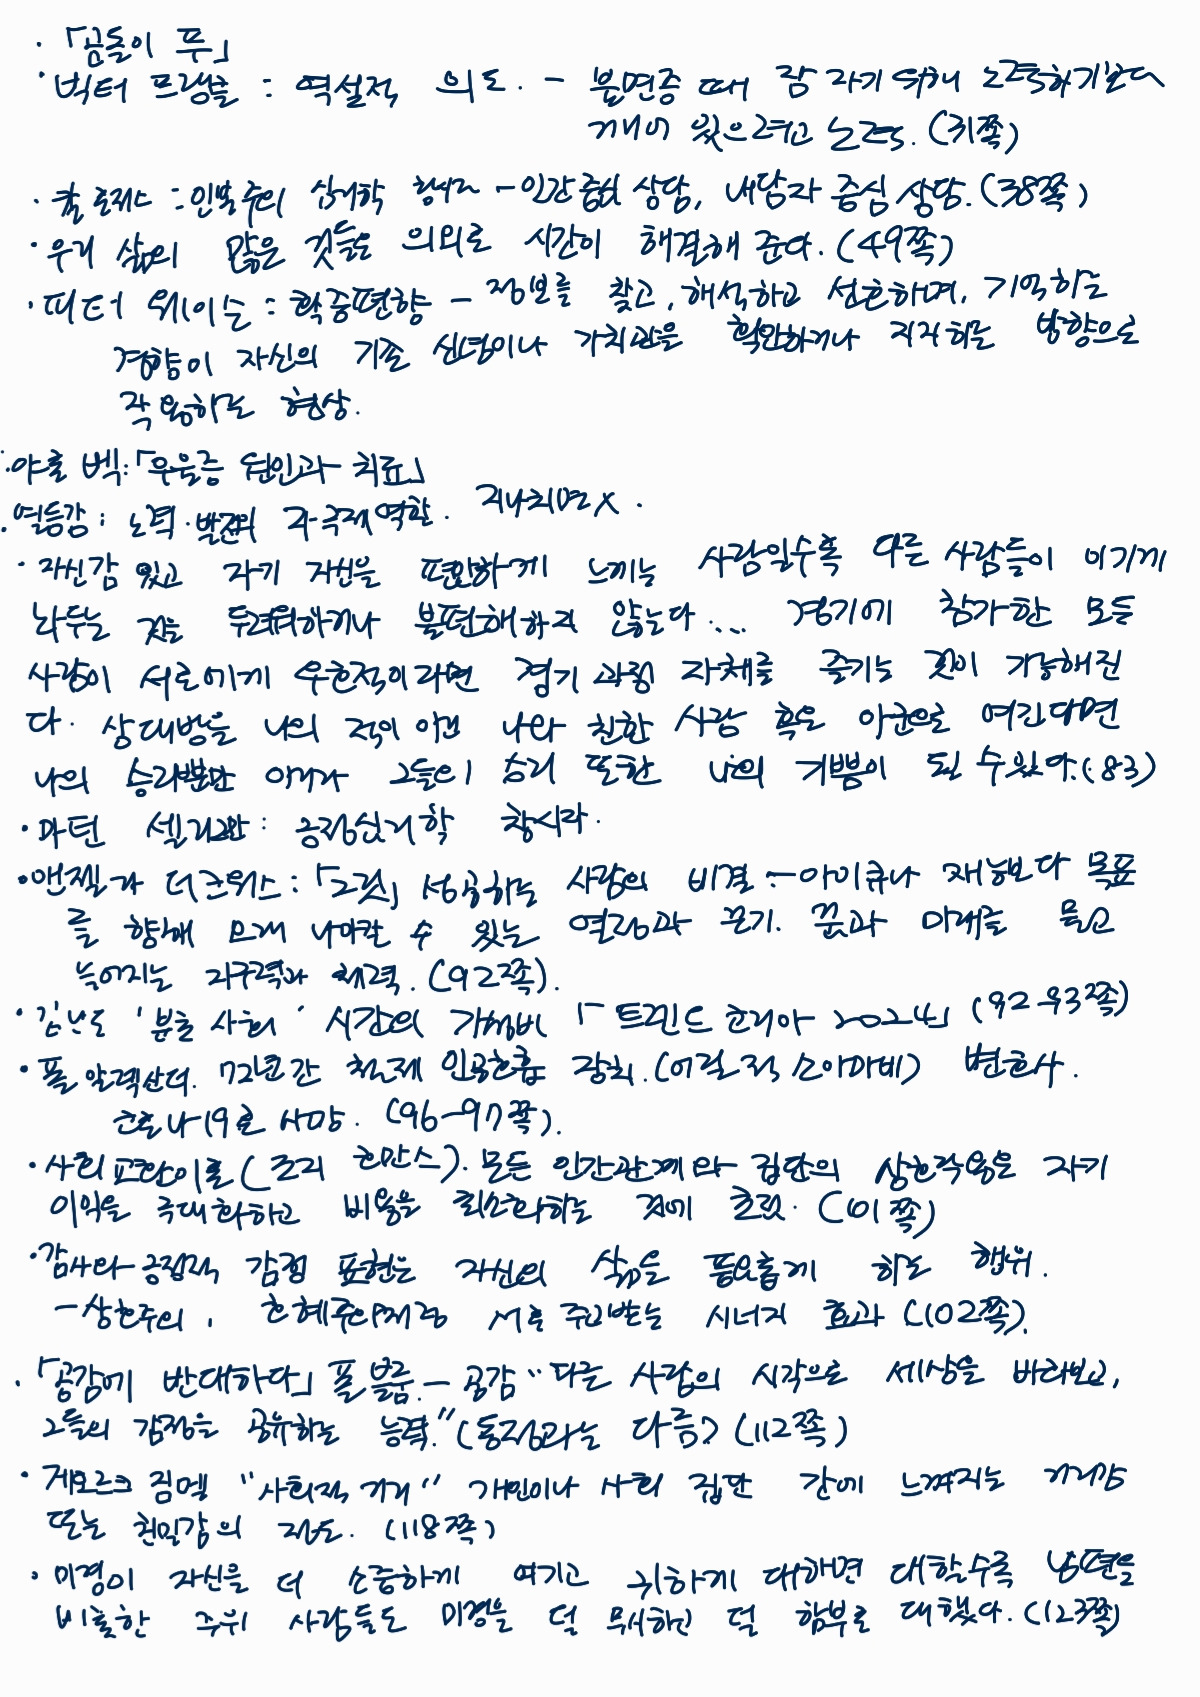 · 「곰돌이 푸」
· 빅터 프랭클 : 역설적 의도. - 불면증 때 잠 자기 위해 노력하기보다
깨어 있으려고 노력. (31쪽)
· 칼 로저스 : 인본주의 심리학 창시자 - 인간중심 상담, 내담자 중심 상담. (38쪽)
· 우리 삶의 많은 것들은 의외로 시간이 해결해 준다. (49쪽)
· 피터 웨이슨 : 확증편향 - 정보를 찾고, 해석하고 선호하며, 기억하는
경향이 자신의 기존 신념이나 가치관을 확인하거나 지지하는 방향으로
작용하는 현상.
· 아론 벡: 「우울증 원인과 치료」
· 열등감: 노력·발전의 자극제 역할. 지나치면 X.
· 자신감 있고 자기 자신을 편안하게 느끼는 사람일수록 다른 사람들이 이기게
놔두는 것을 두려워하거나 불편해하지 않는다.... 경기에 참가한 모든
사람이 서로에게 우호적이라면 경기 과정 자체를 즐기는 것이 가능해진
다. 상대방을 나의 적이 아닌 나와 친한 사람 혹은 아군으로 여긴다면
나의 승리뿐만 아니라 그들의 승리 또한 나의 기쁨이 될 수 있다. (83)
· 마틴 셀리그만: 긍정심리학 창시자.
· 앤젤라 더크워스: 「그릿」 성공하는 사람의 비결 - 아이큐나 재능보다 목표
를 향해 오래 나아갈 수 있는 열정과 끈기. 꿈과 미래를 물고
늘어지는 지구력과 체력. (92쪽).
· 김난도 '분초 사회' 시간의 가성비 「트렌드 코리아 2024」 (92-93쪽)
· 폴 알렉산더. 72년간 철제 인공호흡 장치. (어릴 적 소아마비) 변호사.
코로나19로 사망. (96-97쪽).
· 사회교환이론 (조지 호만스). 모든 인간관계와 집단의 상호작용은 자기
이익을 극대화하고 비용을 최소화하는 것에 초점. (101쪽)
· 감사와 긍정적 감정 표현은 자신의 삶을 풍요롭게 하는 행위.
- 상호주의, 호혜주의처럼 서로 주고받는 시너지 효과 (102쪽).
· 「공감에 반대하다」 폴 블룸. - 공감 "다른 사람의 시각으로 세상을 바라보고,
그들의 감정을 공유하는 능력." (동정과는 다름) (112쪽)
· 게오르크 짐멜 "사회적 거리" 개인이나 사회 집단 간에 느껴지는 거리감
또는 친밀감의 정도. (118쪽)
· 미경이 자신을 더 소중하게 여기고 귀하게 대하면 대할수록 남편을
비롯한 주위 사람들도 미경을 덜 무시하고 덜 함부로 대했다. (123쪽)